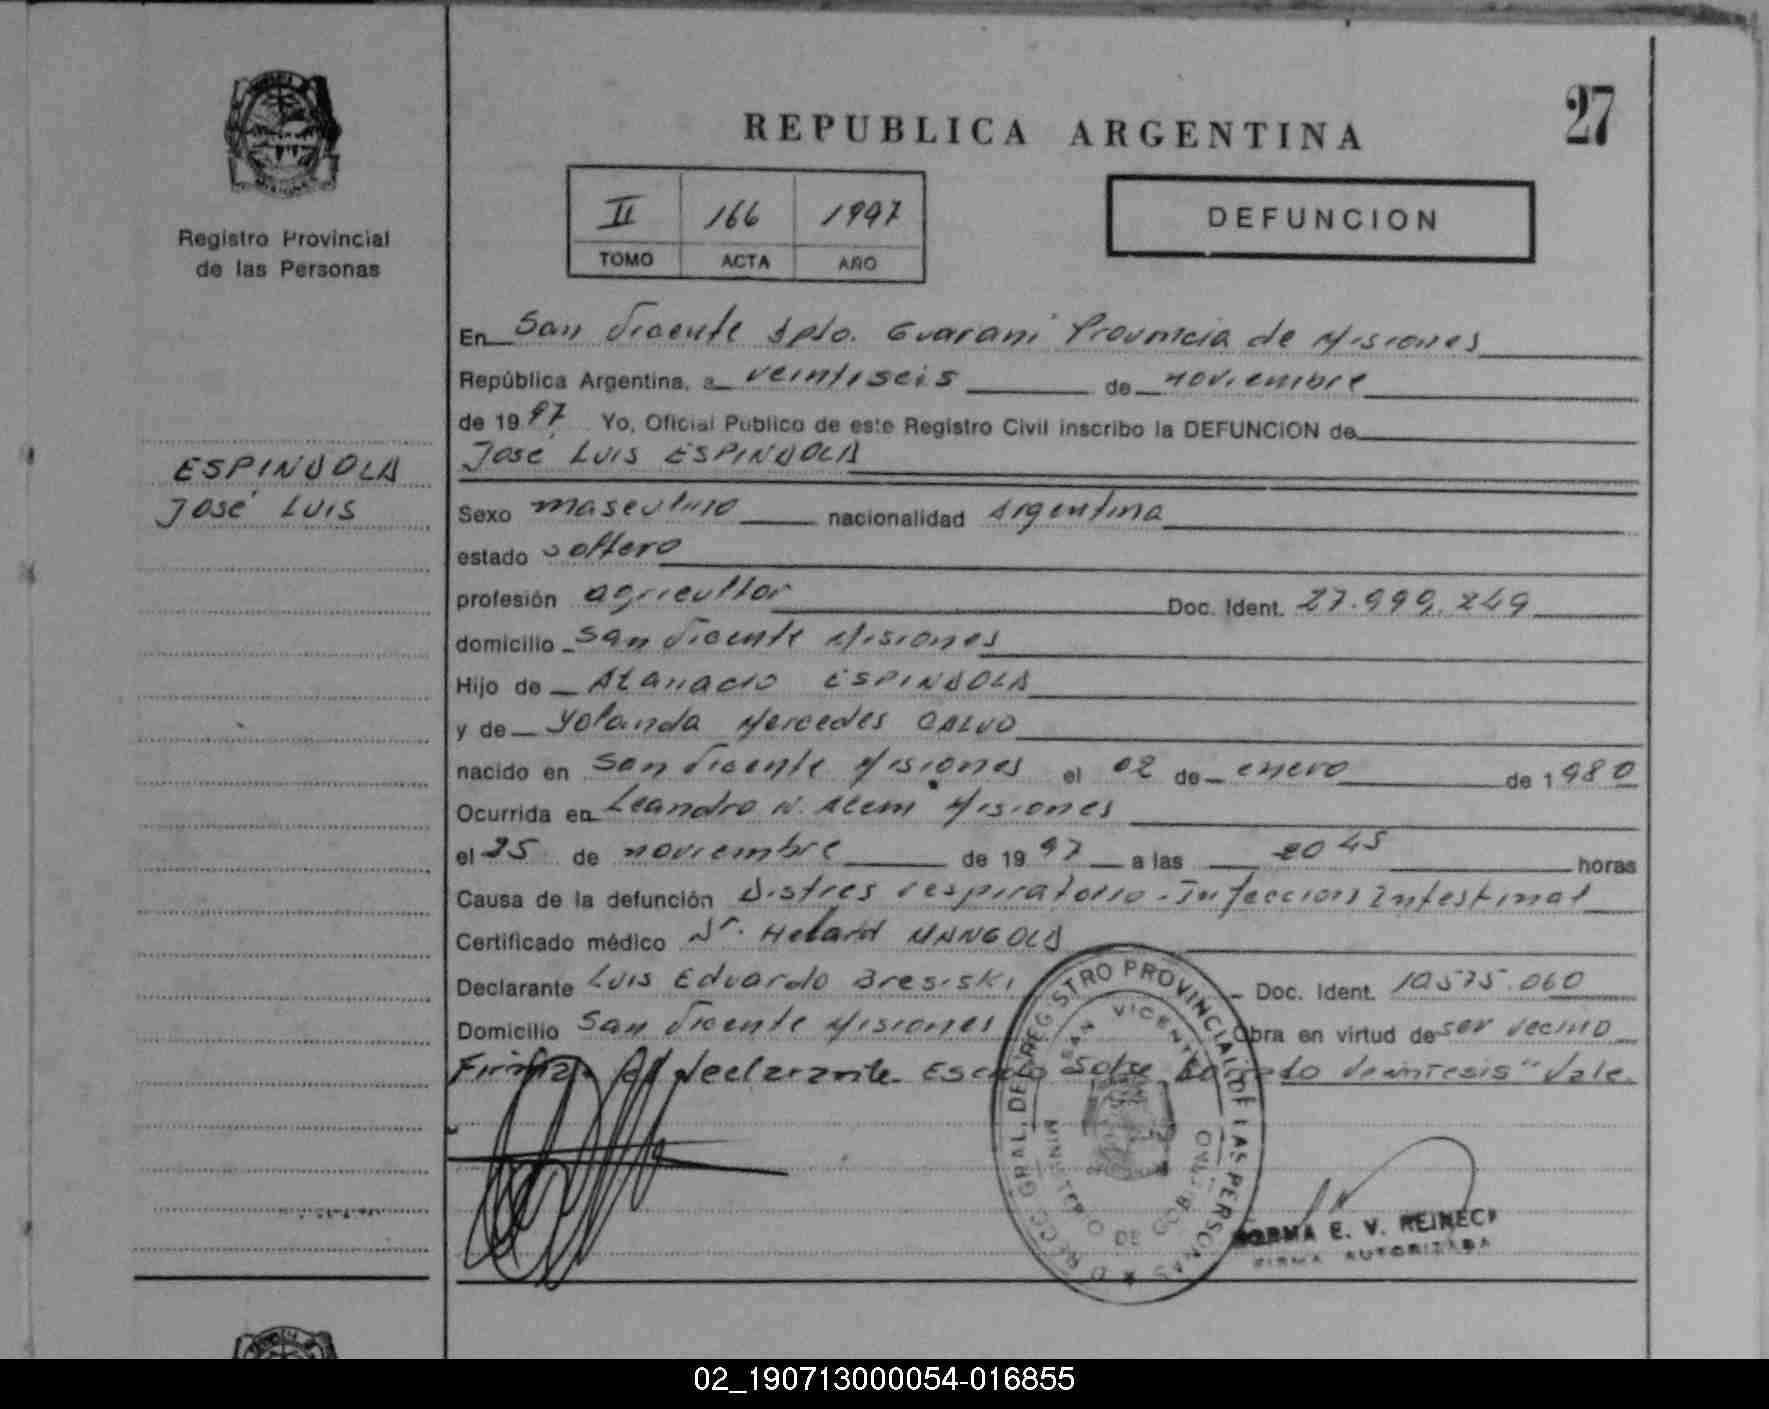 REPUBLICA ARGENTINA
27
II 166 1997
TOMO ACTA AÑO
DEFUNCION
Registro Provincial
de las Personas
ESPINDOLA
José Luis
En San Vicente Dpto. Guarani Provincia de Misiones
República Argentina, a veintiseis de noviembre
de 1997 Yo, Oficial Público de este Registro Civil inscribo la DEFUNCION de
José Luis ESPINDOLA
Sexo masculino nacionalidad Argentina
estado soltero
profesión agricultor Doc. Ident. 27.999.249
domicilio San Vicente Misiones
Hijo de Atanacio ESPINDOLA
y de Yolanda Mercedes CALVO
nacido en San Vicente Misiones el 02 de enero de 1980
Ocurrida en Leandro N. Alem Misiones
el 25 de noviembre de 1997 a las 20 45 horas
Causa de la defunción Distres respiratorio - Infeccion Intestinal
Certificado médico Dr. MANGOLD
Declarante Luis Eduardo Bresiski Doc. Ident. 10.575.060
Domicilio San Vicente Misiones Obra en virtud de ser vecino
Firma del declarante. Sobre Vale.
DIRECC. GRAL. DEL REGISTRO PROVINCIAL DE LAS PERSONAS
SAN VICENTE
MINISTERIO DE GOBIERNO
NORMA E. V. REINECK
FIRMA AUTORIZADA
MISIONES
02_190713000054-016855